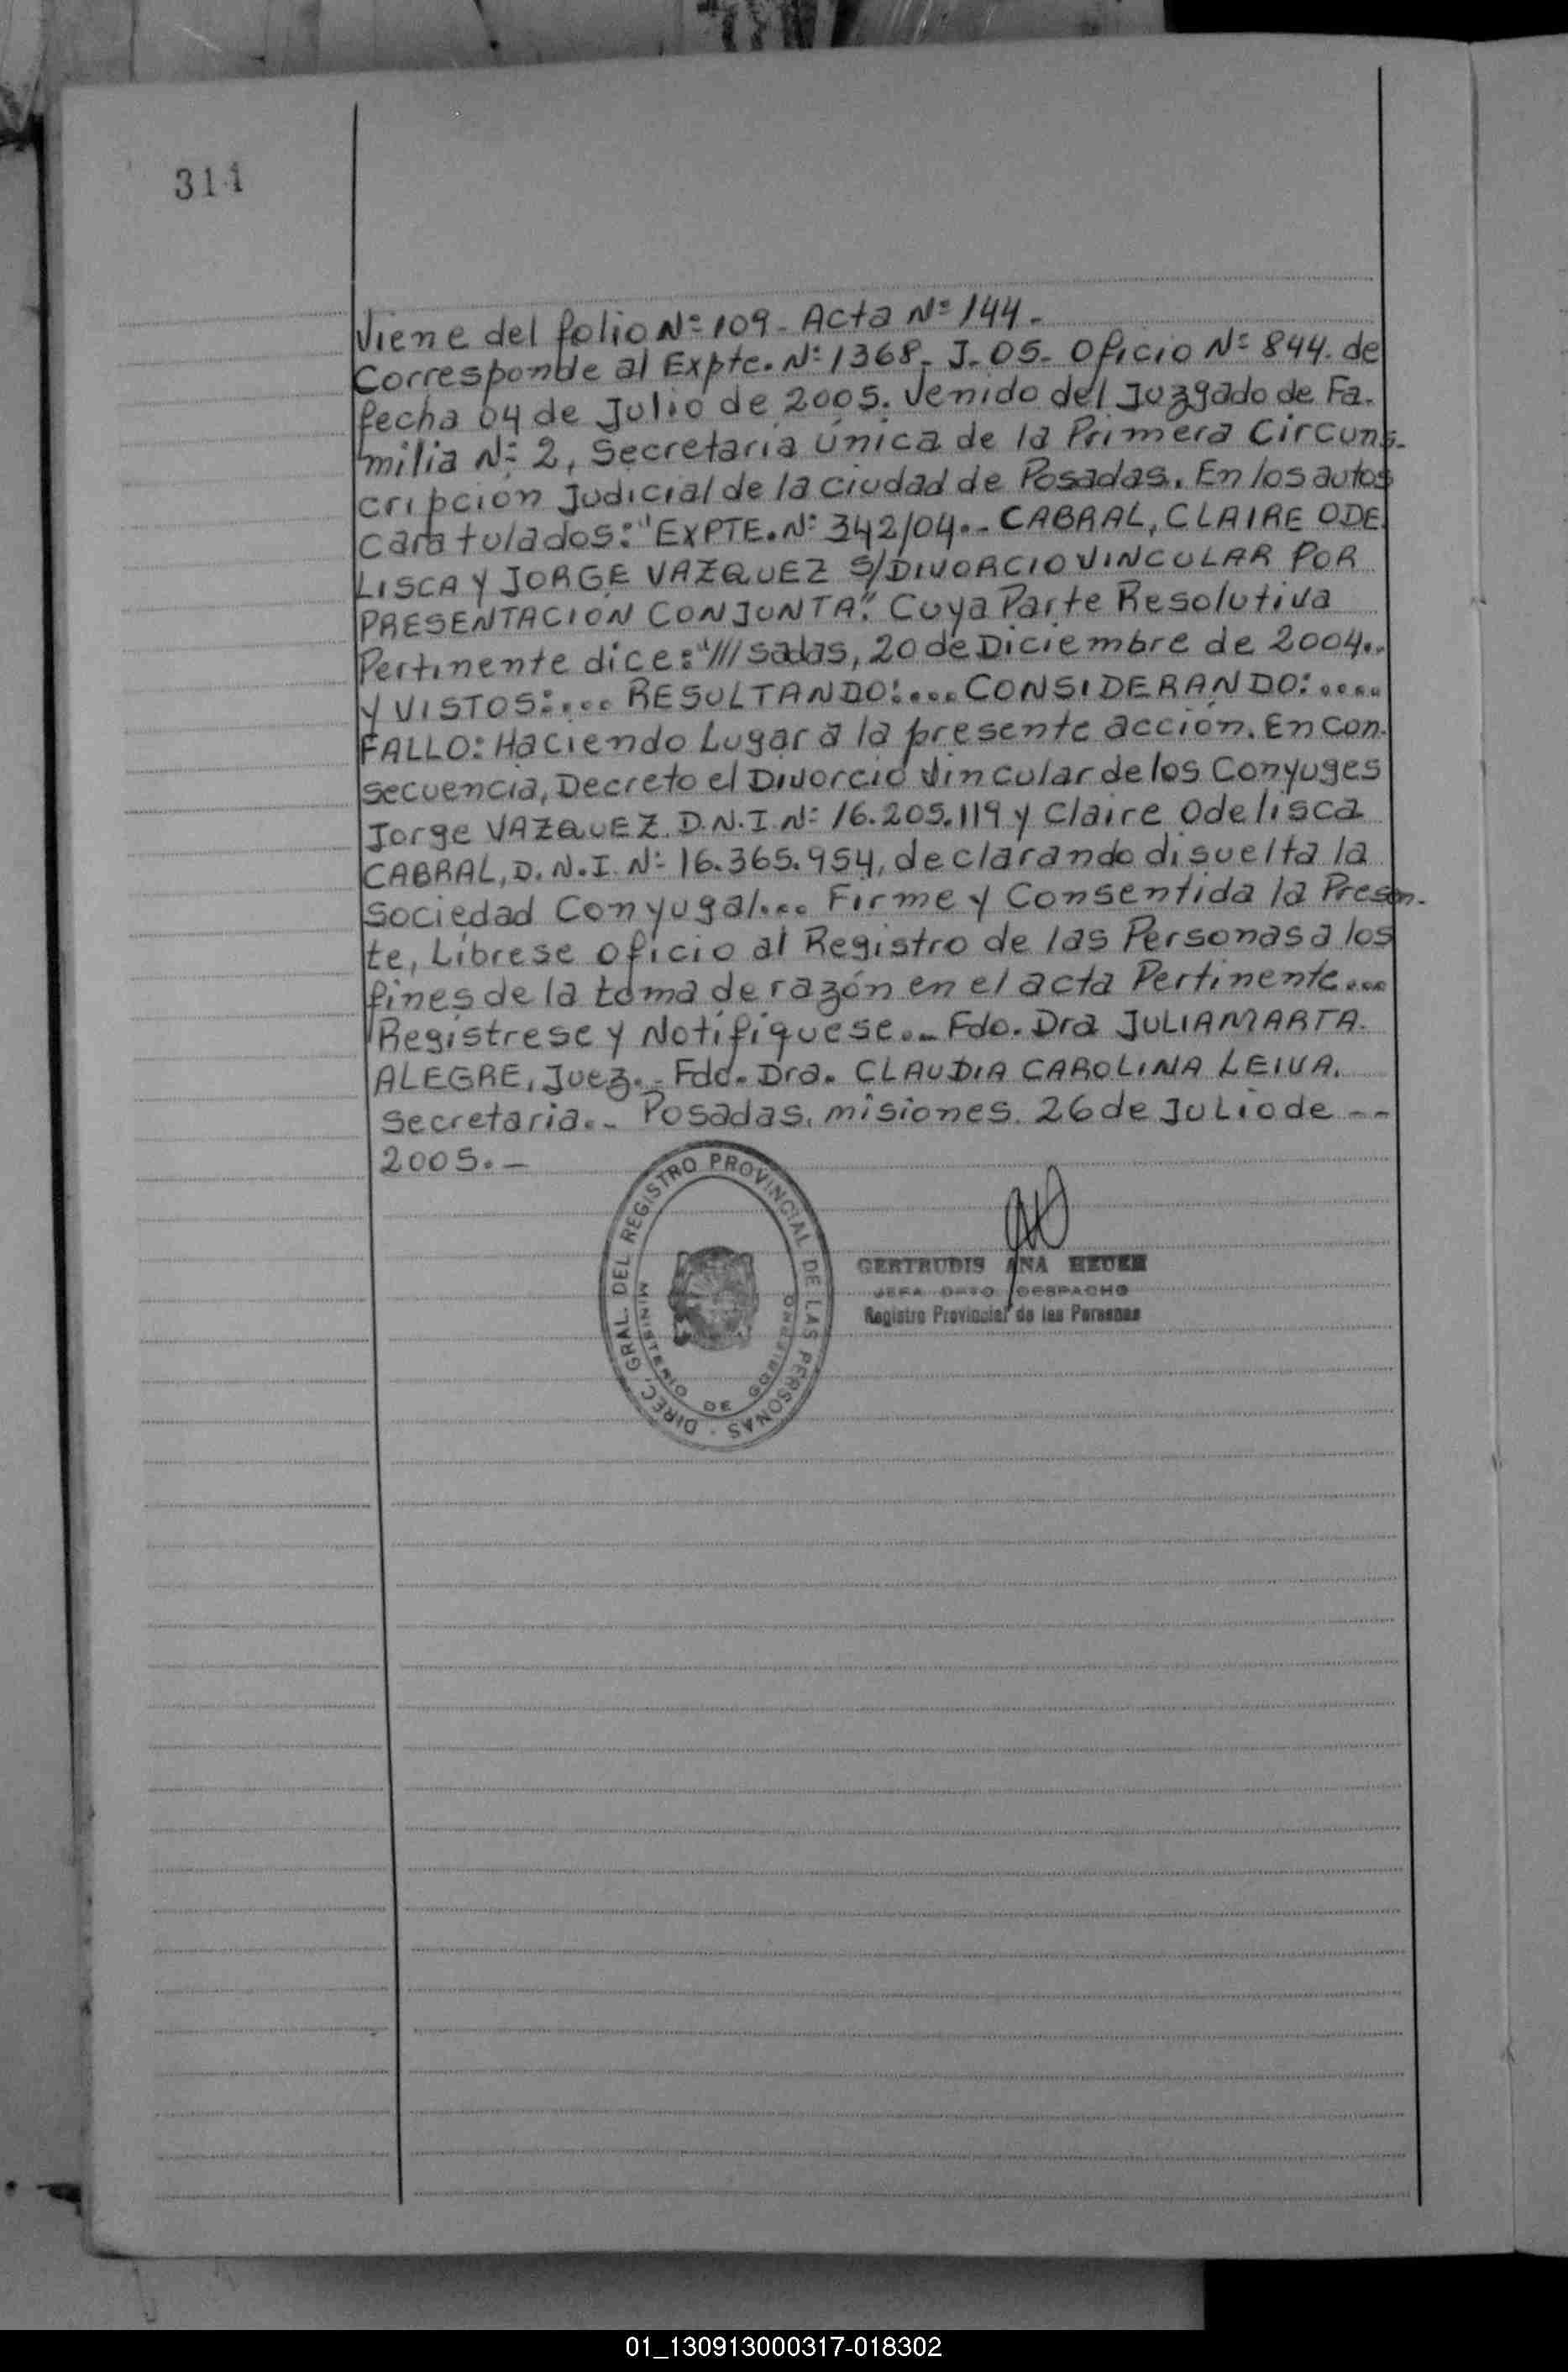 311
Viene del folio Nº 109 - Acta Nº 144 -
Corresponde al Expte. Nº 1368 - J - 05 - Oficio Nº 844. de
fecha 04 de Julio de 2005. Venido del Juzgado de Fa-
milia Nº 2, Secretaría Única de la Primera Circuns-
cripción Judicial de la ciudad de Posadas. En los autos
caratulados: "EXPTE. Nº 342/04.- CABRAL, CLAIRE ODE-
LISCA Y JORGE VAZQUEZ S/DIVORCIO VINCULAR POR
PRESENTACIÓN CONJUNTA". Cuya Parte Resolutiva
Pertinente dice: "///sadas, 20 de Diciembre de 2004..
Y VISTOS:.... RESULTANDO:.... CONSIDERANDO:.....
FALLO: Haciendo Lugar a la presente acción. En con-
secuencia, Decreto el Divorcio Vincular de los Conyuges
Jorge VAZQUEZ D.N.I Nº 16.205.119 y Claire Odelisca
CABRAL, D.N.I. Nº 16.365.954, declarando disuelta la
Sociedad Conyugal.... Firme y Consentida la Presen-
te, Líbrese oficio al Registro de las Personas a los
fines de la toma de razón en el acta Pertinente....
Regístrese y Notifíquese.- Fdo. Dra JULIA MARTA
ALEGRE, Juez.- Fdo. Dra. CLAUDIA CAROLINA LEIVA.
Secretaria.- Posadas, misiones. 26 de Julio de --
2005.-
DIREC. GRAL. DEL REGISTRO PROVINCIAL DE LAS PERSONAS
MINISTERIO DE GOBIERNO
GERTRUDIS ANA
JEFA DPTO DESPACHO
Registro Provincial de las Personas
01_130913000317-018302